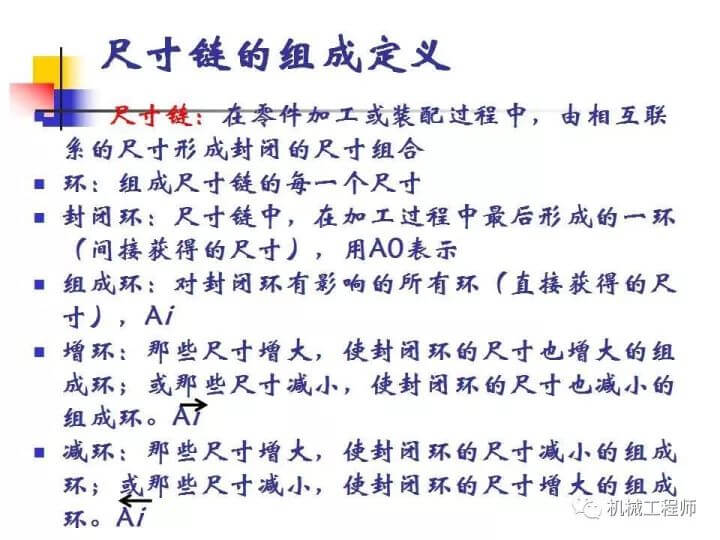 尺寸链的组成定义
尺寸链：在零件加工或装配过程中，由相互联
系的尺寸形成封闭的尺寸组合
环：组成尺寸链的每一个尺寸
封闭环：尺寸链中，在加工过程中最后形成的一环
（间接获得的尺寸），用A0表示
组成环：对封闭环有影响的所有环（直接获得的尺
寸），Ai
增环：那些尺寸增大，使封闭环的尺寸也增大的组
成环；或那些尺寸减小，使封闭环的尺寸也减小的
组成环。Ai
减环：那些尺寸增大，使封闭环的尺寸减小的组成
环；或那些尺寸减小，使封闭环的尺寸增大的组成
环。Ai
机械工程师